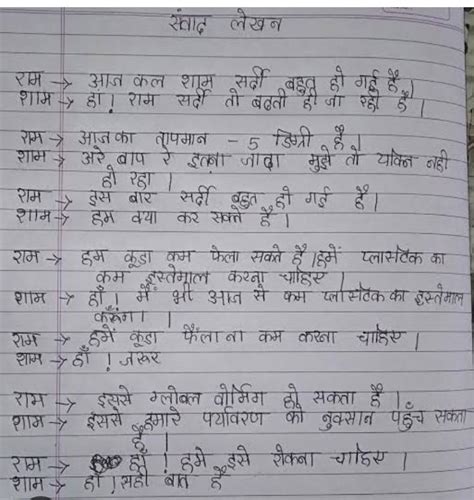 संवाद लेखन
राम → आज कल शाम सर्दी बहुत हो गई है।
शाम → हां! राम सर्दी तो बढ़ती ही जा रही है।
राम → आज का तापमान -5 डिग्री है।
शाम → अरे बाप रे इतना जादा मुझे तो यकिन नही
हो रहा।
राम → इस बार सर्दी बहुत हो गई है।
शाम → हम क्या कर सकते है।
राम → हम कूडा कम फेला सकते है। हमें प्लासटिक का
कम इस्तेमाल करना चाहिए।
शाम → हाँ! मैं भी आज से कम प्लासटिक का इस्तेमाल
करूँगा।
राम → हमें कूडा फैलाना कम करना चाहिए।
शाम → हाँ! जरूर
राम → इससे ग्लोबल वोर्मिग हो सकता है।
शाम → इससे हमारे पर्यावरण को नुक्सान पहुँच सकता
है।
राम → हाँ! हमे इसे रोकना चाहिए।
शाम → हाँ! सही बात है